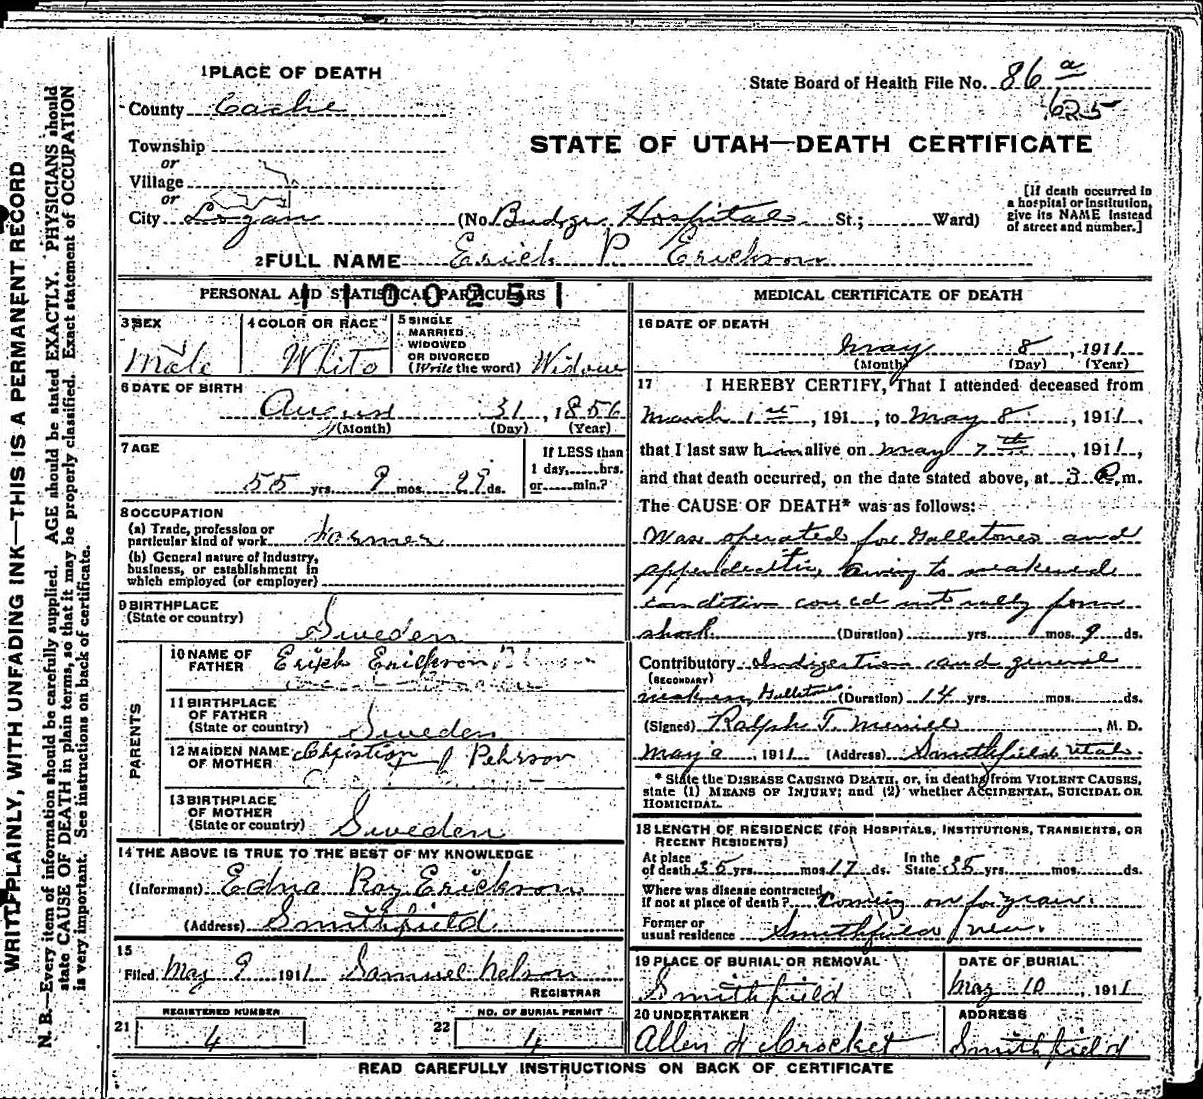 WRITE PLAINLY, WITH UNFADING INK—THIS IS A PERMANENT RECORD
N. B.—Every item of information should be carefully supplied. AGE should be stated EXACTLY. PHYSICIANS should
state CAUSE OF DEATH in plain terms, so that it may be properly classified. Exact statement of OCCUPATION
is very important. See instructions on back of certificate.
1 PLACE OF DEATH
State Board of Health File No. 86 a
625
County Cache
STATE OF UTAH—DEATH CERTIFICATE
Township
or
Village
or
City Logan (No. Budge Hospital St.; Ward)
[If death occurred in
a hospital or institution,
give its NAME instead
of street and number.]
2 FULL NAME Erick P. Erickson
PERSONAL AND STATISTICAL PARTICULARS
110025
3 SEX
Male
4 COLOR OR RACE
White
5 SINGLE
MARRIED
WIDOWED
OR DIVORCED
(Write the word) Widow
6 DATE OF BIRTH
August 31, 1856
(Month) (Day) (Year)
7 AGE
55 yrs. 9 mos. 29 ds.
If LESS than
1 day, hrs.
or min.?
8 OCCUPATION
(a) Trade, profession or
particular kind of work Farmer
(b) General nature of industry,
business, or establishment in
which employed (or employer)
9 BIRTHPLACE
(State or country)
Sweden
PARENTS
10 NAME OF
FATHER Erick Erickson
11 BIRTHPLACE
OF FATHER
(State or country) Sweden
12 MAIDEN NAME
OF MOTHER Pehrson
13 BIRTHPLACE
OF MOTHER
(State or country) Sweden
14 THE ABOVE IS TRUE TO THE BEST OF MY KNOWLEDGE
(Informant) Edna Roy Erickson
(Address) Smithfield
15
Filed May 9 1911 Samuel Nelson
REGISTRAR
REGISTERED NUMBER
21 4
NO. OF BURIAL PERMIT
22 4
MEDICAL CERTIFICATE OF DEATH
16 DATE OF DEATH
May 8, 1911
(Month) (Day) (Year)
17 I HEREBY CERTIFY, That I attended deceased from
March 1st, 191 , to May 8, 1911,
that I last saw him alive on May 7th, 1911,
and that death occurred, on the date stated above, at 3 P.m.
The CAUSE OF DEATH* was as follows:
Was operated for Gallstones and
appendicitis, owing to weakened
condition could not rally from
shock (Duration) yrs. mos. 9 ds.
Contributory Indigestion and general
(SECONDARY)
weakness Gallstones (Duration) 14 yrs. mos. ds.
(Signed) Ralph T. Merrill M. D.
May 9, 1911 (Address) Smithfield Utah.
* State the DISEASE CAUSING DEATH, or, in deaths from VIOLENT CAUSES,
state (1) MEANS OF INJURY; and (2) whether ACCIDENTAL, SUICIDAL OR
HOMICIDAL.
18 LENGTH OF RESIDENCE (FOR HOSPITALS, INSTITUTIONS, TRANSIENTS, OR
RECENT RESIDENTS)
At place
of death 35 yrs. mos. 17 ds.
In the
State 35 yrs. mos. ds.
Where was disease contracted
if not at place of death? Coming on for years.
Former or
usual residence Smithfield
19 PLACE OF BURIAL OR REMOVAL
Smithfield
DATE OF BURIAL
May 10, 1911
20 UNDERTAKER
Allen Crocket
ADDRESS
Smithfield
READ CAREFULLY INSTRUCTIONS ON BACK OF CERTIFICATE